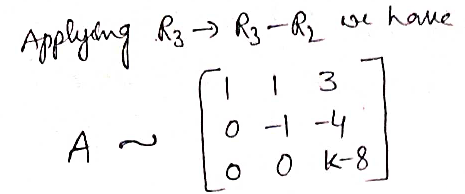 Applying R₃ → R₃ - R₂ we have
A ~ [1 1 3
0 -1 -4
0 0 K-8]